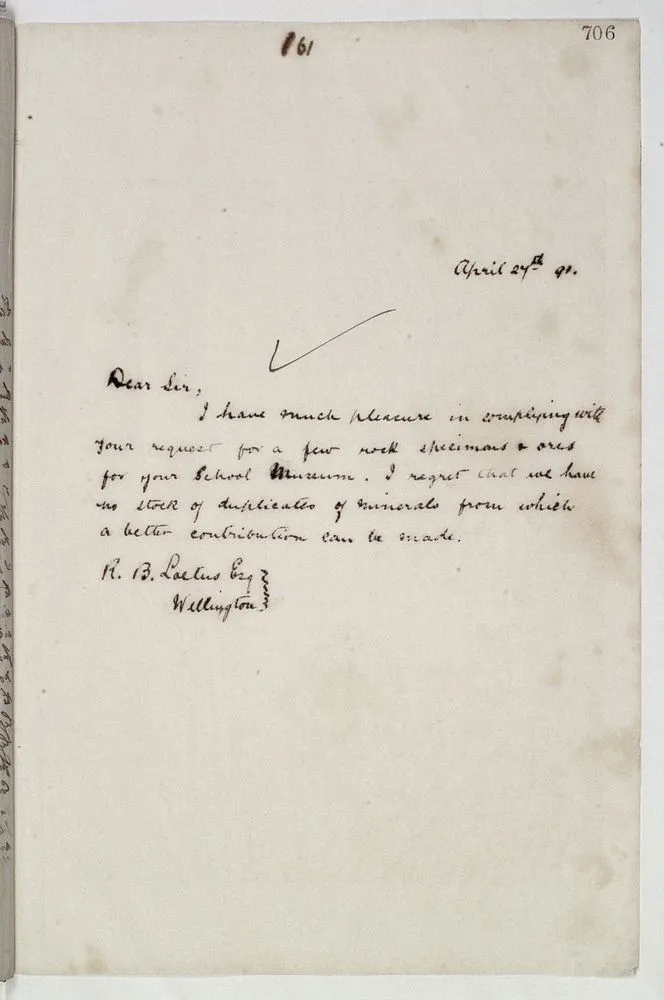 706
161
April 27th 91.
Dear Sir,
I have much pleasure in complying with
your request for a few rock specimens & ores
for your School Museum. I regret that we have
no stock of duplicates of minerals from which
a better contribution can be made.
R. B. Esq
Wellington